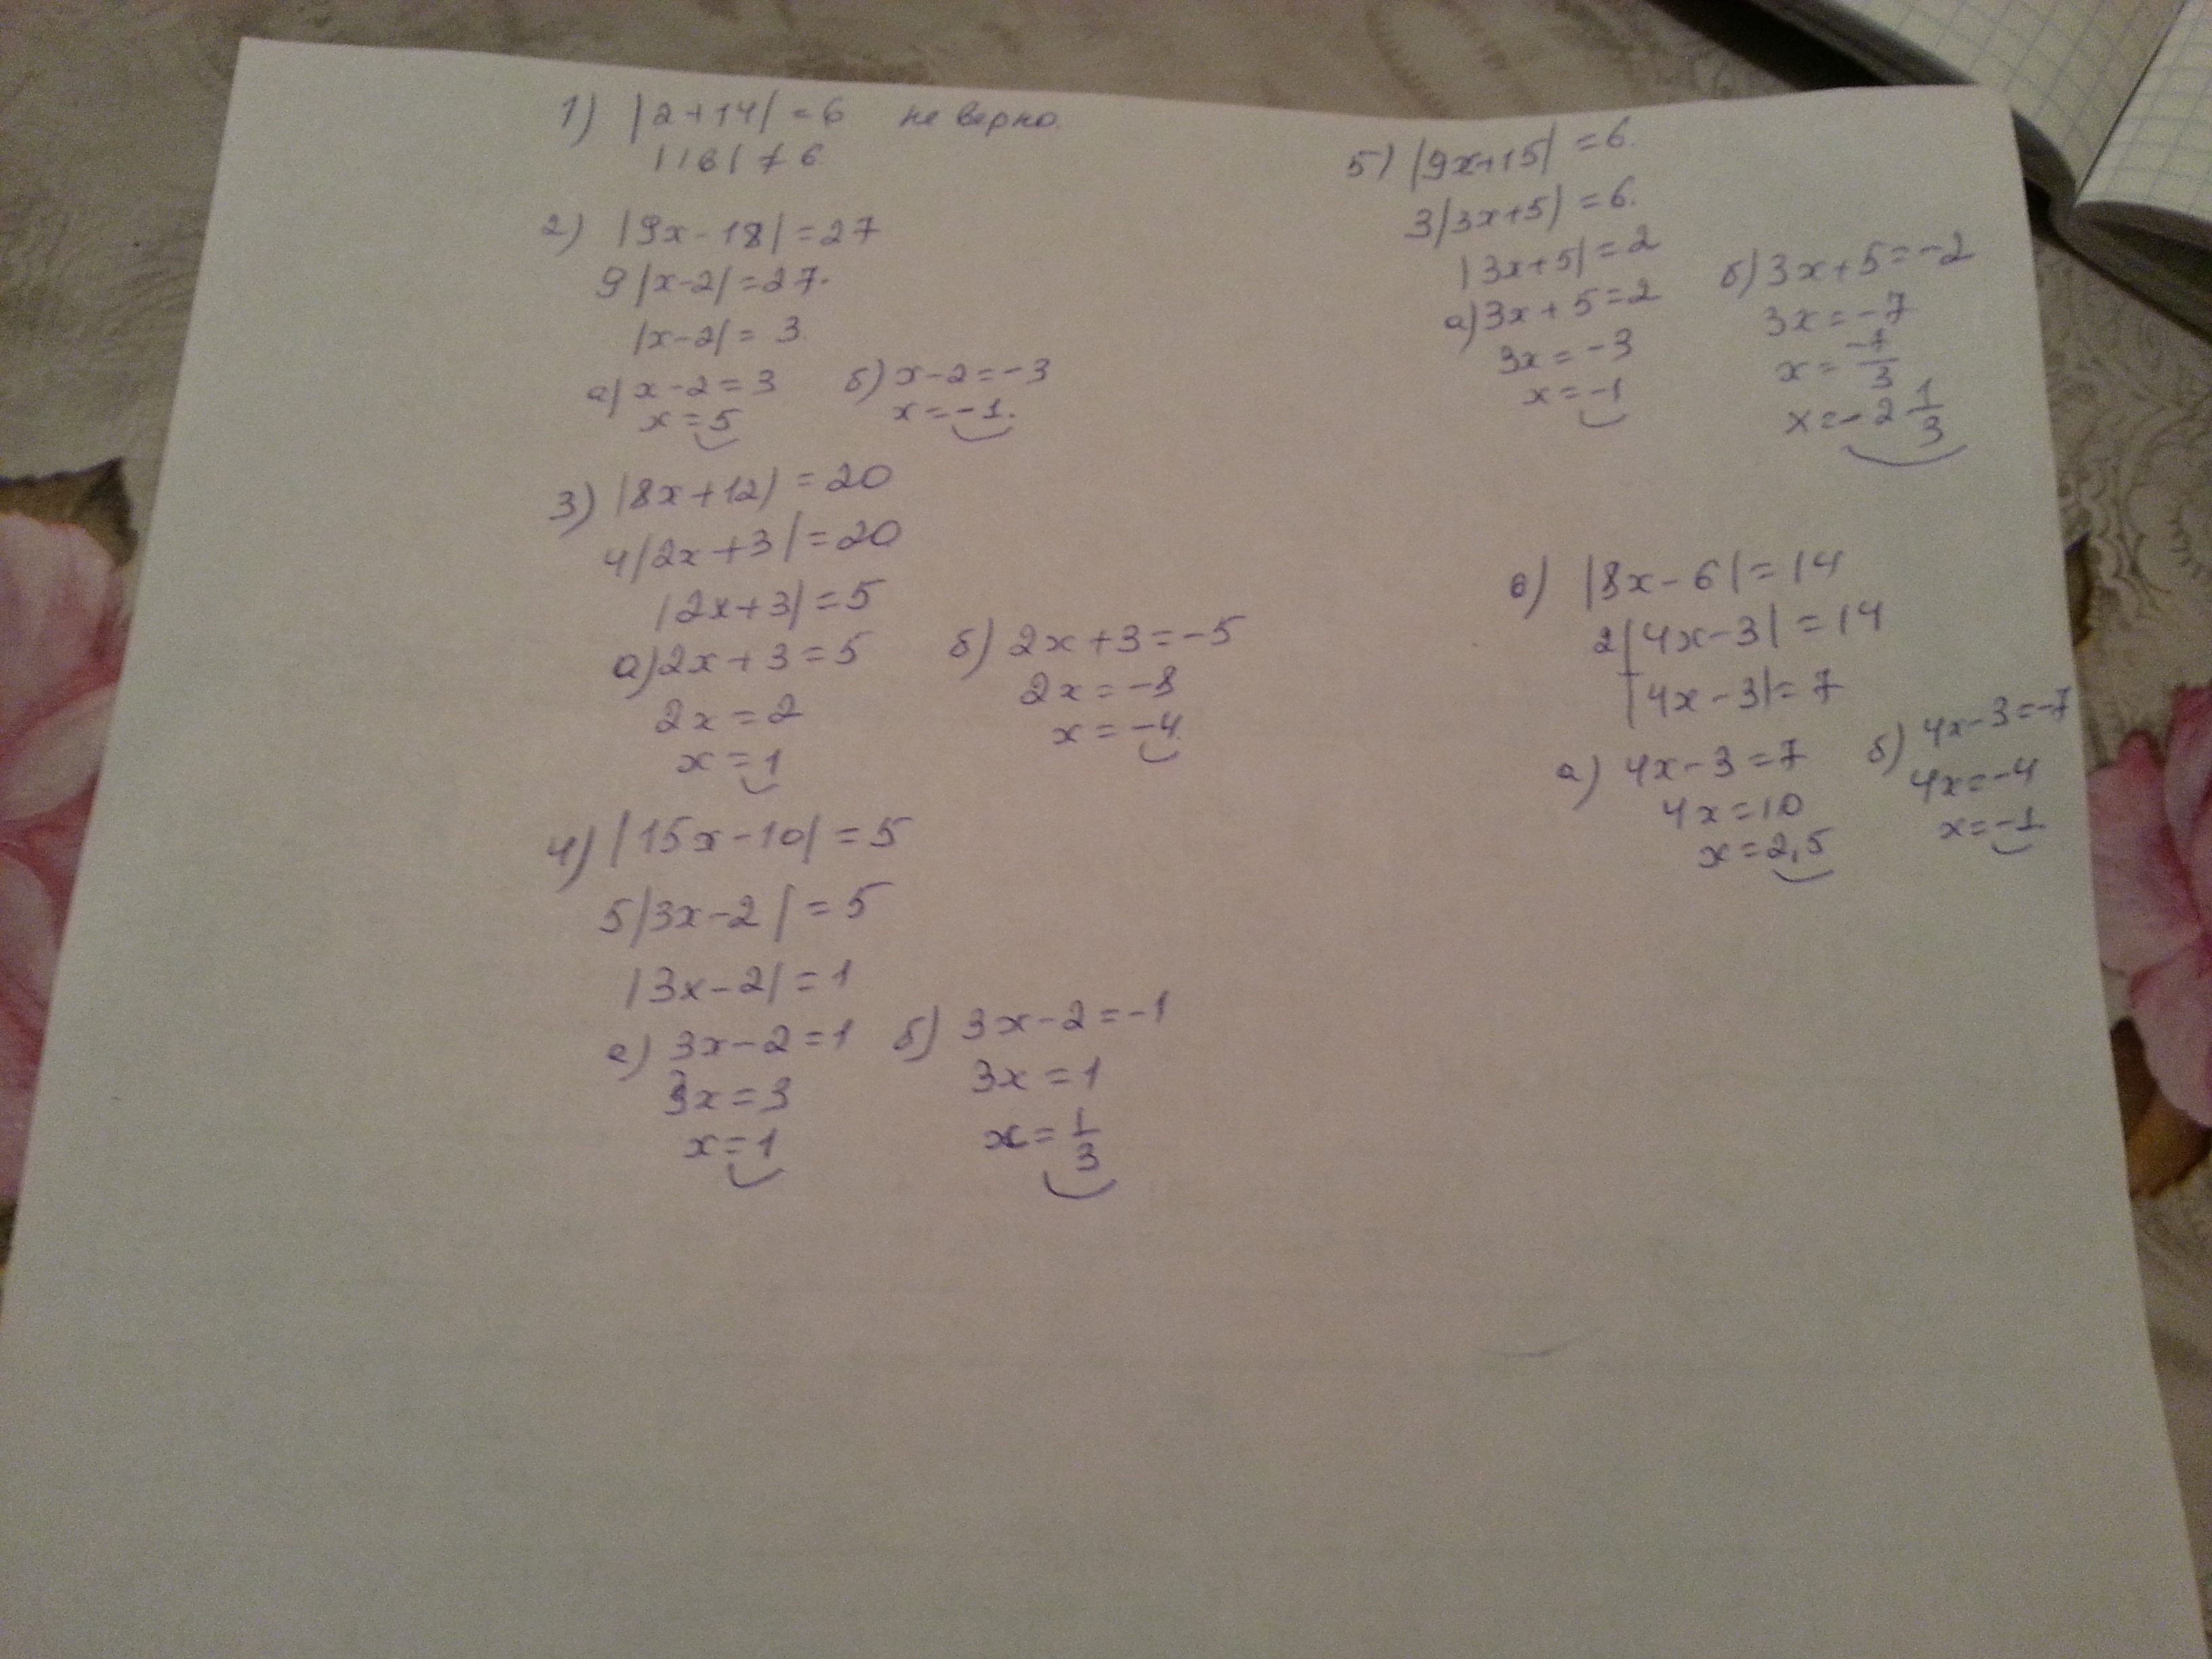 1) |2+14| = 6 не верно.
|16| ≠ 6
2) |9x-18| = 27
9|x-2| = 27.
|x-2| = 3.
а) x-2 = 3 б) x-2 = -3
x = 5 x = -1.
3) |8x+12| = 20
4|2x+3| = 20
|2x+3| = 5
а) 2x+3 = 5 б) 2x+3 = -5
2x = 2 2x = -8
x = 1 x = -4.
4) |15x-10| = 5
5|3x-2| = 5
|3x-2| = 1
а) 3x-2 = 1 б) 3x-2 = -1
3x = 3 3x = 1
x = 1 x = 1/3
5) |9x+15| = 6.
3|3x+5| = 6.
|3x+5| = 2
а) 3x+5 = 2 б) 3x+5 = -2
3x = -3 3x = -7
x = -1 x = -7/3
x = -2 1/3
6) |8x-6| = 14
2|4x-3| = 14
|4x-3| = 7
а) 4x-3 = 7 б) 4x-3 = -7
4x = 10 4x = -4
x = 2,5 x = -1